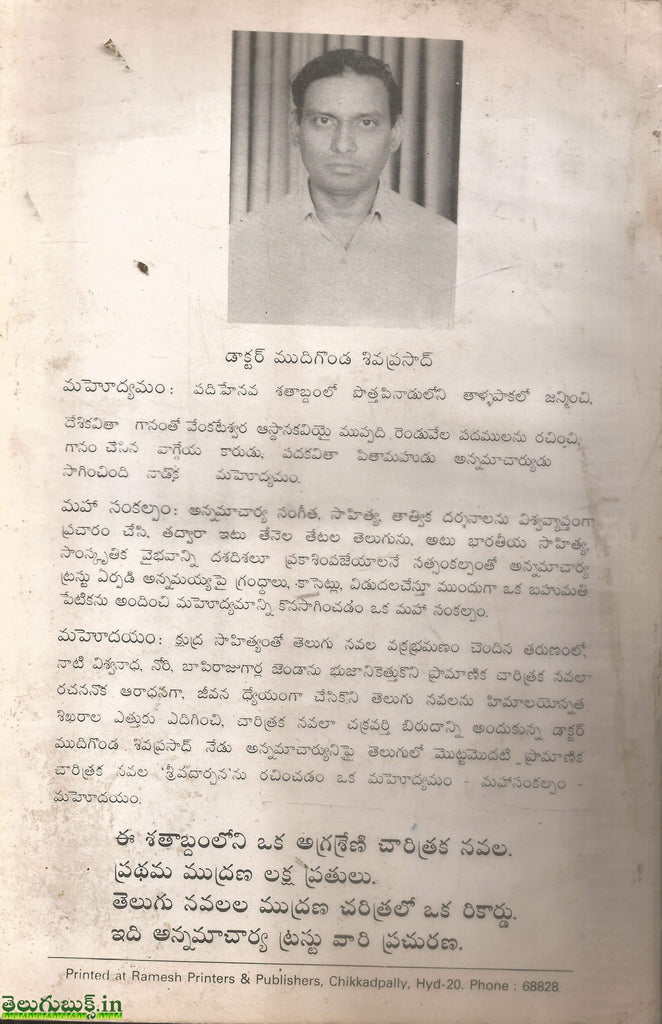 డాక్టర్ ముదిగొండ శివప్రసాద్
మహోద్యమం : పదిహేనవ శతాబ్దంలో పొత్తపినాడులోని తాళ్ళపాకలో జన్మించి,
దేశికవితా గానంతో వేంకటేశ్వర ఆస్థానకవియై ముప్పది రెండువేల పదములను రచించి,
గానం చేసిన వాగ్గేయ కారుడు, పదకవితా పితామహుడు అన్నమాచార్యుడు
సాగించింది నాడొక మహోద్యమం.
మహా సంకల్పం : అన్నమాచార్య సంగీత, సాహిత్య, తాత్విక దర్శనాలను విశ్వవ్యాప్తంగా
ప్రచారం చేసి, తద్వారా ఇటు తేనెల తేటల తెలుగును, అటు భారతీయ సాహిత్య,
సాంస్కృతిక వైభవాన్ని దశదిశలూ ప్రకాశింపజేయాలనే సత్సంకల్పంతో అన్నమాచార్య
ట్రస్టు ఏర్పడి అన్నమయ్యపై గ్రంథాలు, కాసెట్లు, విడుదలచేస్తూ ముందుగా ఒక బహుమతి
పేటికను అందించి మహోద్యమాన్ని కొనసాగించడం ఒక మహా సంకల్పం.
మహోదయం : క్షుద్ర సాహిత్యంతో తెలుగు నవల వక్రభ్రమణం చెందిన తరుణంలో,
నాటి విశ్వనాథ, నోరి, బాపిరాజుగార్ల జెండాను భుజానికెత్తుకొని ప్రామాణిక చారిత్రక నవలా
రచననొక ఆరాధనగా, జీవన ధ్యేయంగా చేసికొని తెలుగు నవలను హిమాలయోన్నత
శిఖరాల ఎత్తుకు ఎదిగించి, చారిత్రక నవలా చక్రవర్తి బిరుదాన్ని అందుకున్న డాక్టర్
ముదిగొండ శివప్రసాద్ నేడు అన్నమాచార్యునిపై తెలుగులో మొట్టమొదటి ప్రామాణిక
చారిత్రక నవల 'శ్రీపదార్చన'ను రచించడం ఒక మహోద్యమం - మహాసంకల్పం -
మహోదయం.
ఈ శతాబ్దంలోని ఒక అగ్రశ్రేణి చారిత్రక నవల.
ప్రథమ ముద్రణ లక్ష ప్రతులు.
తెలుగు నవలల ముద్రణ చరిత్రలో ఒక రికార్డు.
ఇది అన్నమాచార్య ట్రస్టు వారి ప్రచురణ.
Printed at Ramesh Printers & Publishers, Chikkadpally, Hyd-20. Phone : 68828.
తెలుగుబుక్స్.in